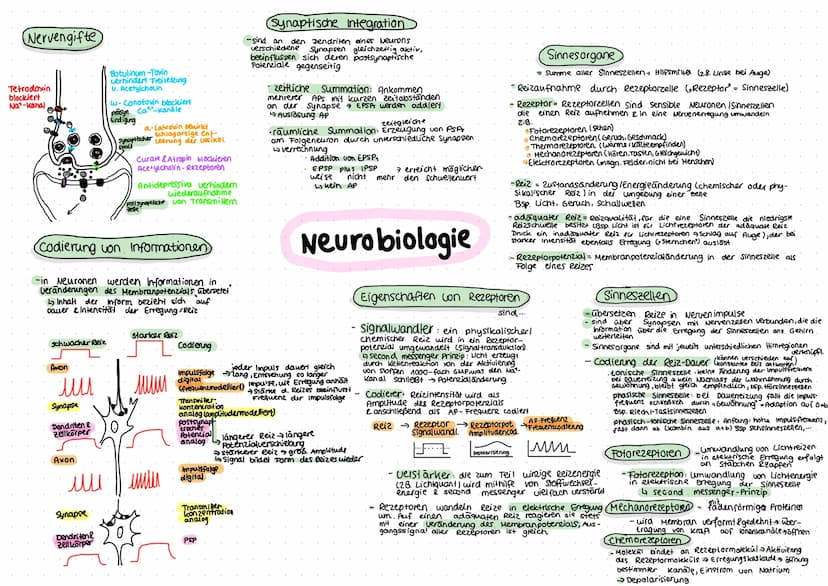 Nervengifte
Tetrodoxin
blockiert
Na⁺-Kanal
Botulinum-Toxin
verhindert Freisetzung
v. Acetylcholin
ω-Conotoxin blockiert
Ca²⁺-Kanäle
Endigung
α-Latroxin bewirkt
schlagartige Ent-
leerung der Vesikel
Synaptischer
Spalt
Curare & Atropin blockieren
Acetylcholin-Rezeptoren
Antidepressiva verhindern
Wiederaufnahme
von Transmittern
postsynaptische
Codierung von Informationen
-in Neuronen werden Informationen in
Veränderungen des Membranpotenzials "übersetzt"
↳ Inhalt der Inform. bezieht sich auf
Dauer & Intensität der Erregung/Reiz
schwacher Reiz
starker Reiz
Codierung
Axon
Impulsfolge
digital
(frequenzmoduliert)
jeder Impuls dauert gleich
lang, Entstehung so lange
Impulse, wie Erregung anhält
→ Stärke d. Reizes beeinflusst
Frequenz der Impulsfolge
Synapse
Transmitter-
konzentration
analog (amplitudenmoduliert)
Dendriten &
Zellkörper
postsynap-
tisches
Potenzial
analog
längerer Reiz → längere
Potenzialverschiebung
→ stärkerer Reiz → große Amplitude
↳ Signal bildet Form des Reizes wieder
Axon
Impulsfolge
digital
Synapse
Transmitter-
konzentration
analog
Dendriten &
Zellkörper
PSP
Synaptische Integration
-sind an den Dendriten eines Neurons
verschiedene Synapsen gleichzeitig aktiv,
beeinflussen sich deren postsynaptische
Potenziale gegenseitig
-zeitliche Summation: Ankommen
mehrerer APs mit kurzen Zeitabständen
an der Synapse → EPSPs werden addiert
→ Auslösung AP
-räumliche Summation: zeitgleiche
Erzeugung von PSPs
am Folgeneuron durch unterschiedliche Synapsen
↳ Verrechnung
· Addition von EPSPs
· EPSP plus IPSP → erreicht möglicher-
weise nicht mehr den Schwellenwert
↳ kein AP
Neurobiologie
Eigenschaften von Rezeptoren
sind...
- Signalwandler: ein physikalischer/
chemischer Reiz wird in ein Rezeptor-
potenzial umgewandelt (Signaltransduktion)
- Codierer: Reizintensität wird als
Amplitude des Rezeptorpotenzials
& anschließend als AP-Frequenz codiert
Reiz → Rezeptor → Rezeptorpot. → AP-Frequenz
Signalwandl.
Amplitudencod.
Frequenzmodulierung
- Verstärker: die zum Teil winzige Reizenergie
(z.B. Lichtquant) wird mithilfe von Stoffwechsel-
energie & second messenger vielfach verstärkt
- Rezeptoren wandeln Reize in elektrische Erregung
um. Auf einen adäquaten Reiz reagieren sie stets
mit einer Veränderung des Membranpotenzials, Aus-
gangssignal aller Rezeptoren ist gleich.
Sinnesorgane
= Summe aller Sinneszellen + Hilfsmittel (z.B. Linse bei Auge)
- Reizaufnahme durch Rezeptorzelle (&"Rezeptor" = Sinneszelle)
- Rezeptor = Rezeptorzellen sind sensible Neuronen/Sinneszellen
die einen Reiz aufnehmen & in eine Nervenerregung umwandeln
z.B.
Fotorezeptoren (Sehen)
Chemorezeptoren (Geruch, Geschmack)
Thermorezeptoren (Wärme & Kälteempfinden)
Mechanorezeptoren (Hören, Tasten, Gleichgewicht)
Elektrorezeptoren (magn. Felder-nicht bei Menschen)
- Reiz = Zustandsänderung/Energieänderung (chemischer oder phy-
sikalischer Reiz) in der Umgebung einer Zelle
Bsp. Licht, Geruch, Schallwellen
- adäquater Reiz = Reizqualität, für die eine Sinneszelle die niedrigste
Reizschwelle besitzt (Bsp. Licht ist für Lichtrezeptoren der adäquate Reiz
Druck ein inadäquater Reiz für Lichtrezeptoren → Schlag auf Auge), der bei
starker Intensität ebenfalls Erregung (→ "Sternchen") auslöst
- Rezeptorpotenzial = Membranpotenzialänderung in der Sinneszelle als
Folge eines Reizes
Sinneszellen
- übersetzen Reize in Nervenimpulse
- sind über Synapsen mit Nervenzellen verbunden, die die
Information über die Erregung der Sinneszelle ans Gehirn
weiterleiten
- Sinnesorgane sind mit jeweils unterschiedlichen Hirnregionen
verknüpft
- Codierung der Reiz-Dauer
Fotorezeptoren
- Umwandlung von Lichtreizen
in elektrische Erregung erfolgt
an Stäbchen & Zapfen
- Fotorezeption: Umwandlung von Lichtenergie
in elektrische Erregung der Sinneszelle
↳ second messenger-Prinzip
Mechanorezeptoren
- fadenförmige Proteine
- wird Membran verformt & gedehnt → Über-
tragung von Kraft auf Ionenkanäle → öffnen
Chemorezeptoren
- Molekül bindet an Rezeptormolekül → Aktivierung
des Rezeptormoleküls → Erregungskaskade → Öffnung
bestimmter Kanäle, Einstrom von Natrium
→ Depolarisierung